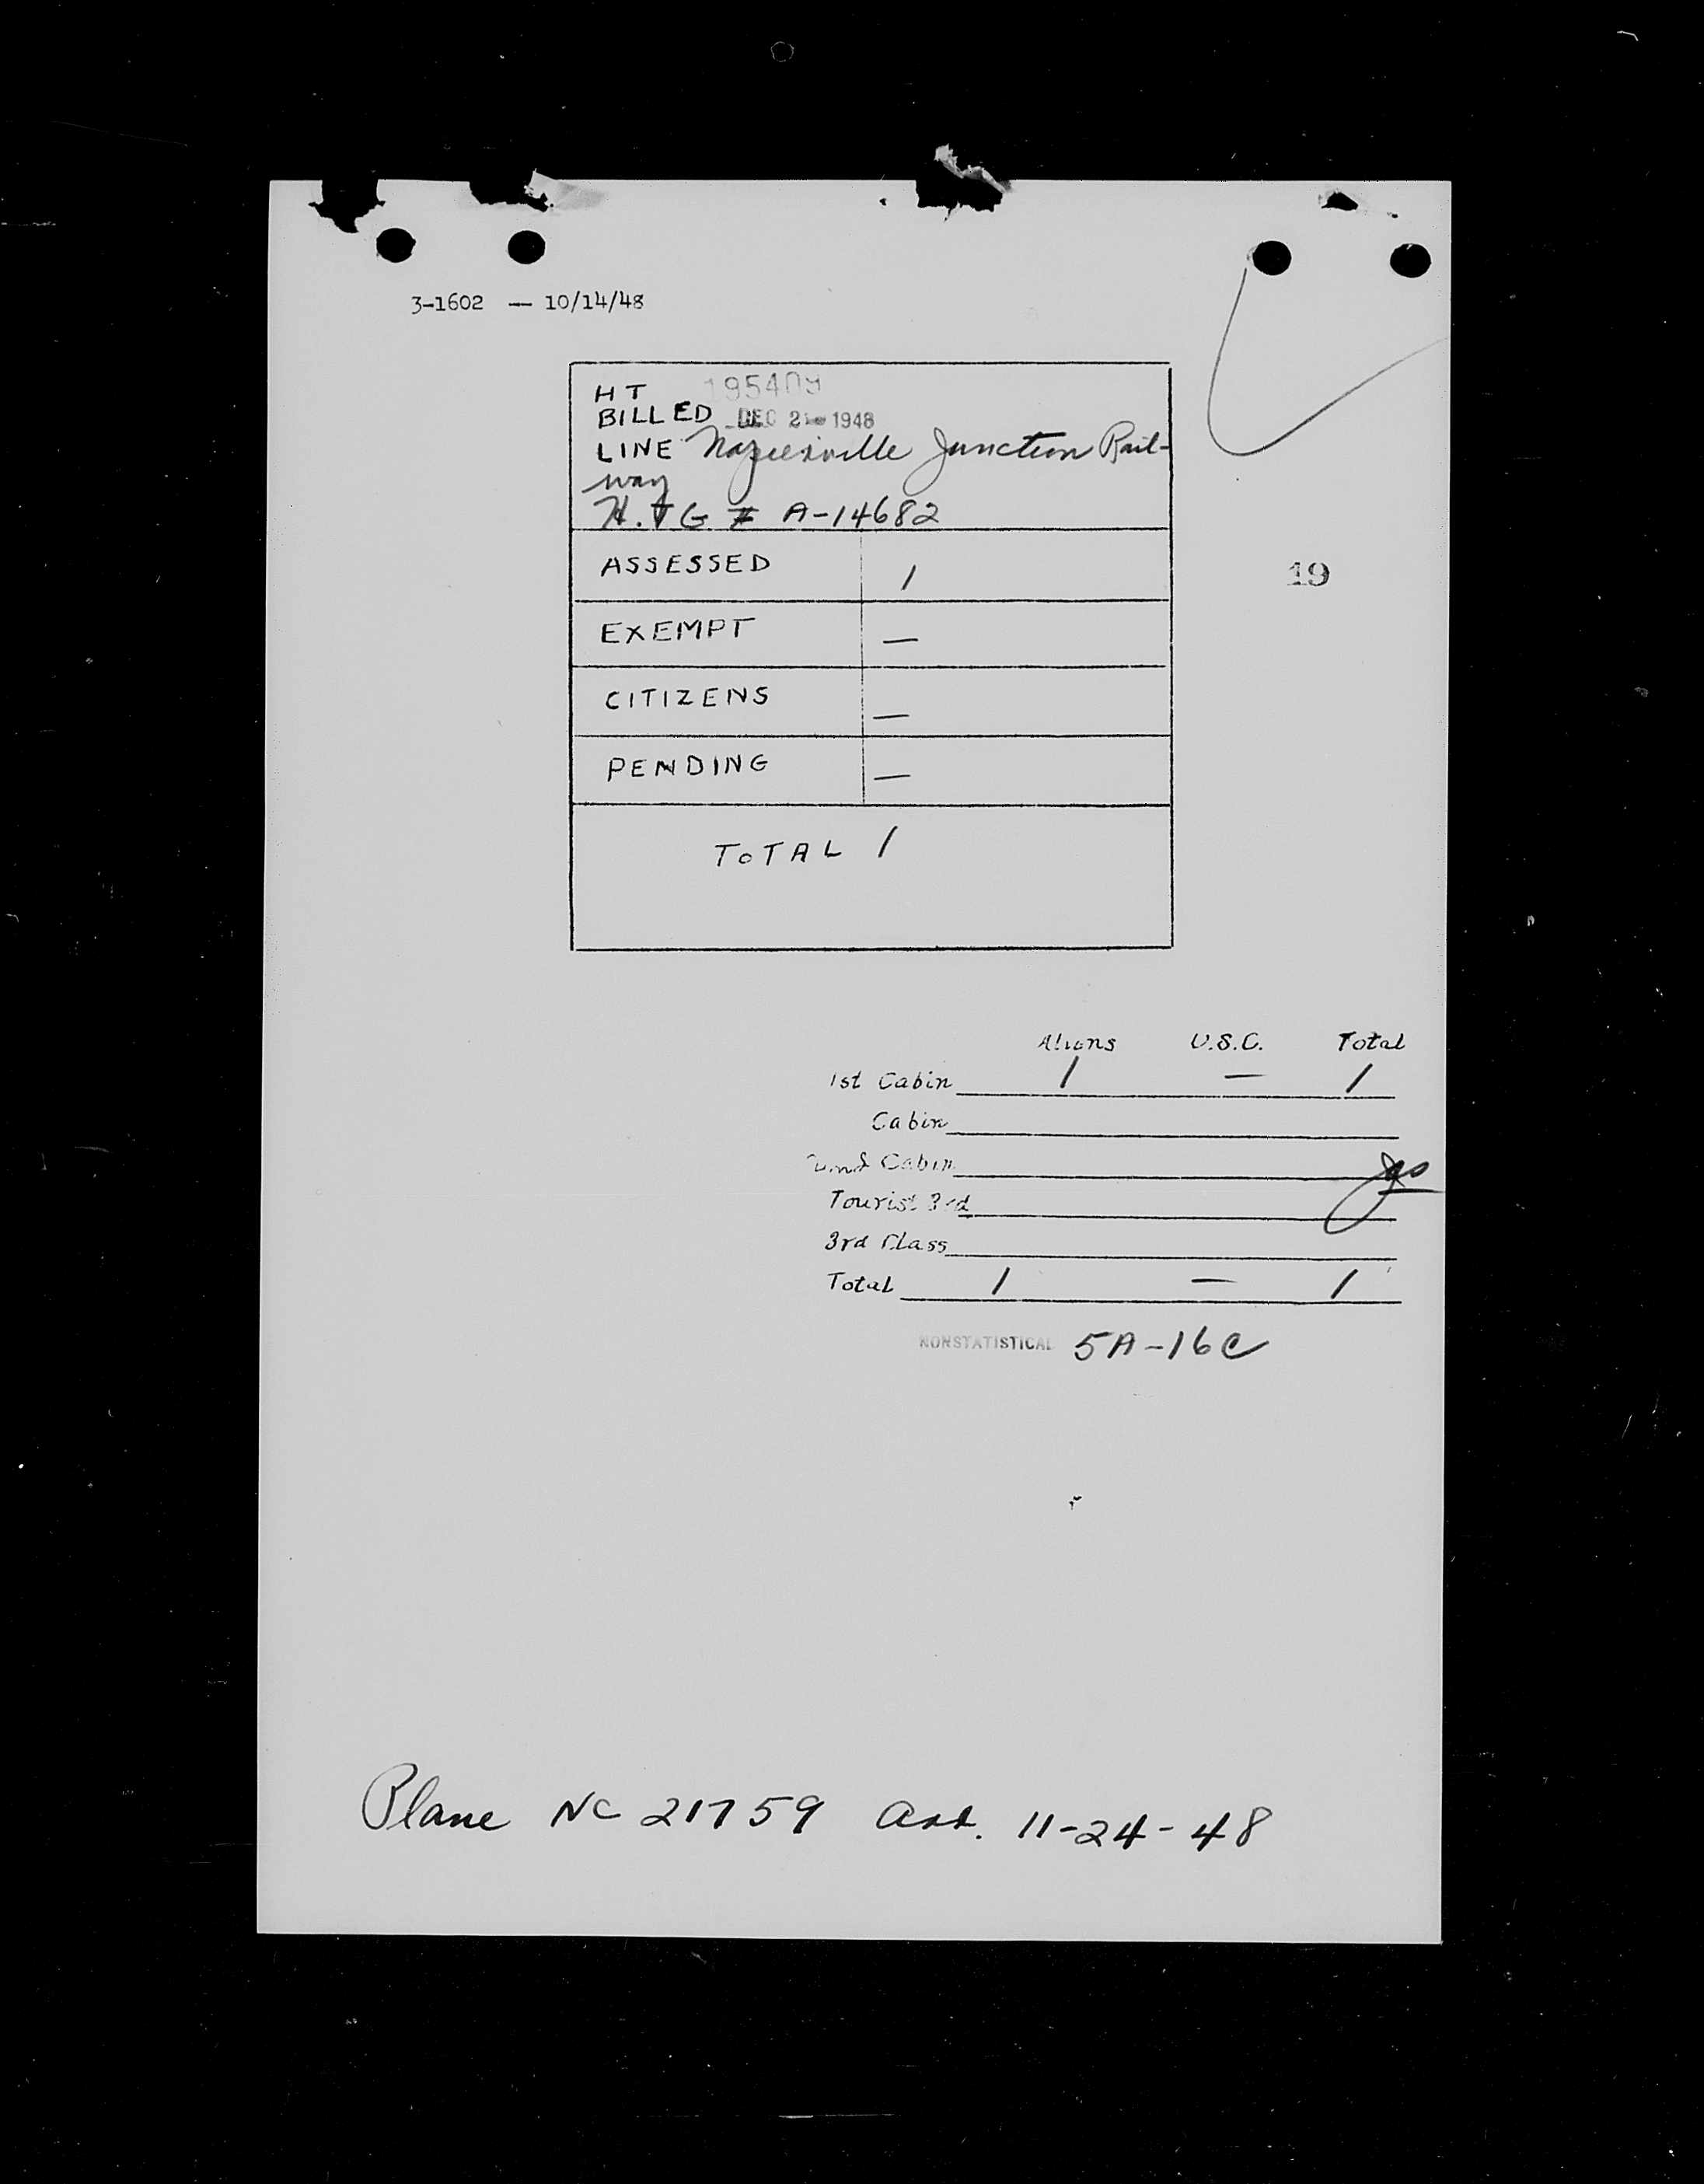 3-1602 — 10/14/48
HT 195409
BILLED DEC 2 1948
LINE Napierville Junction Rail-
way
# A-14682
ASSESSED 1
19
EXEMPT —
CITIZENS —
PENDING —
TOTAL 1
Aliens U.S.C. Total
1st Cabin 1 — 1
Cabin
Cabin
Tourist 3rd
3rd Class
Total 1 — 1
NONSTATISTICAL 5A-16C
Plane NC 21759 arr. 11-24-48